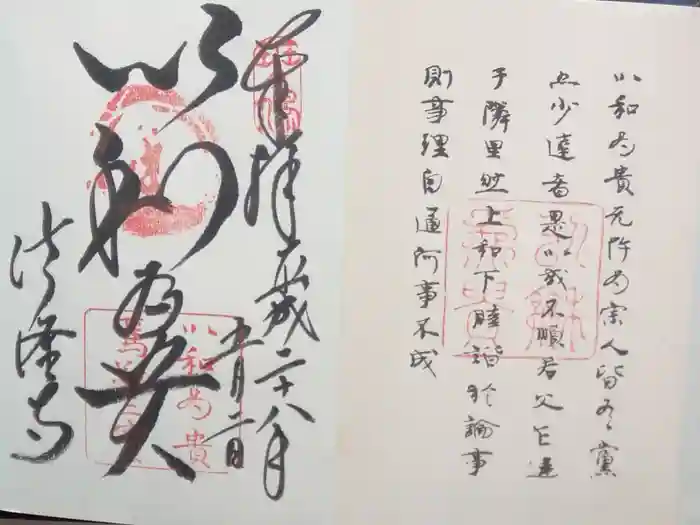 以和為貴无忤為宗人皆有黨
亦少達者是以或不順君父乍違
于隣里然上和下睦諧於論事
則事理自通何事不成
奉拝 平成二十八年
以和為貴
法隆寺
以和為貴